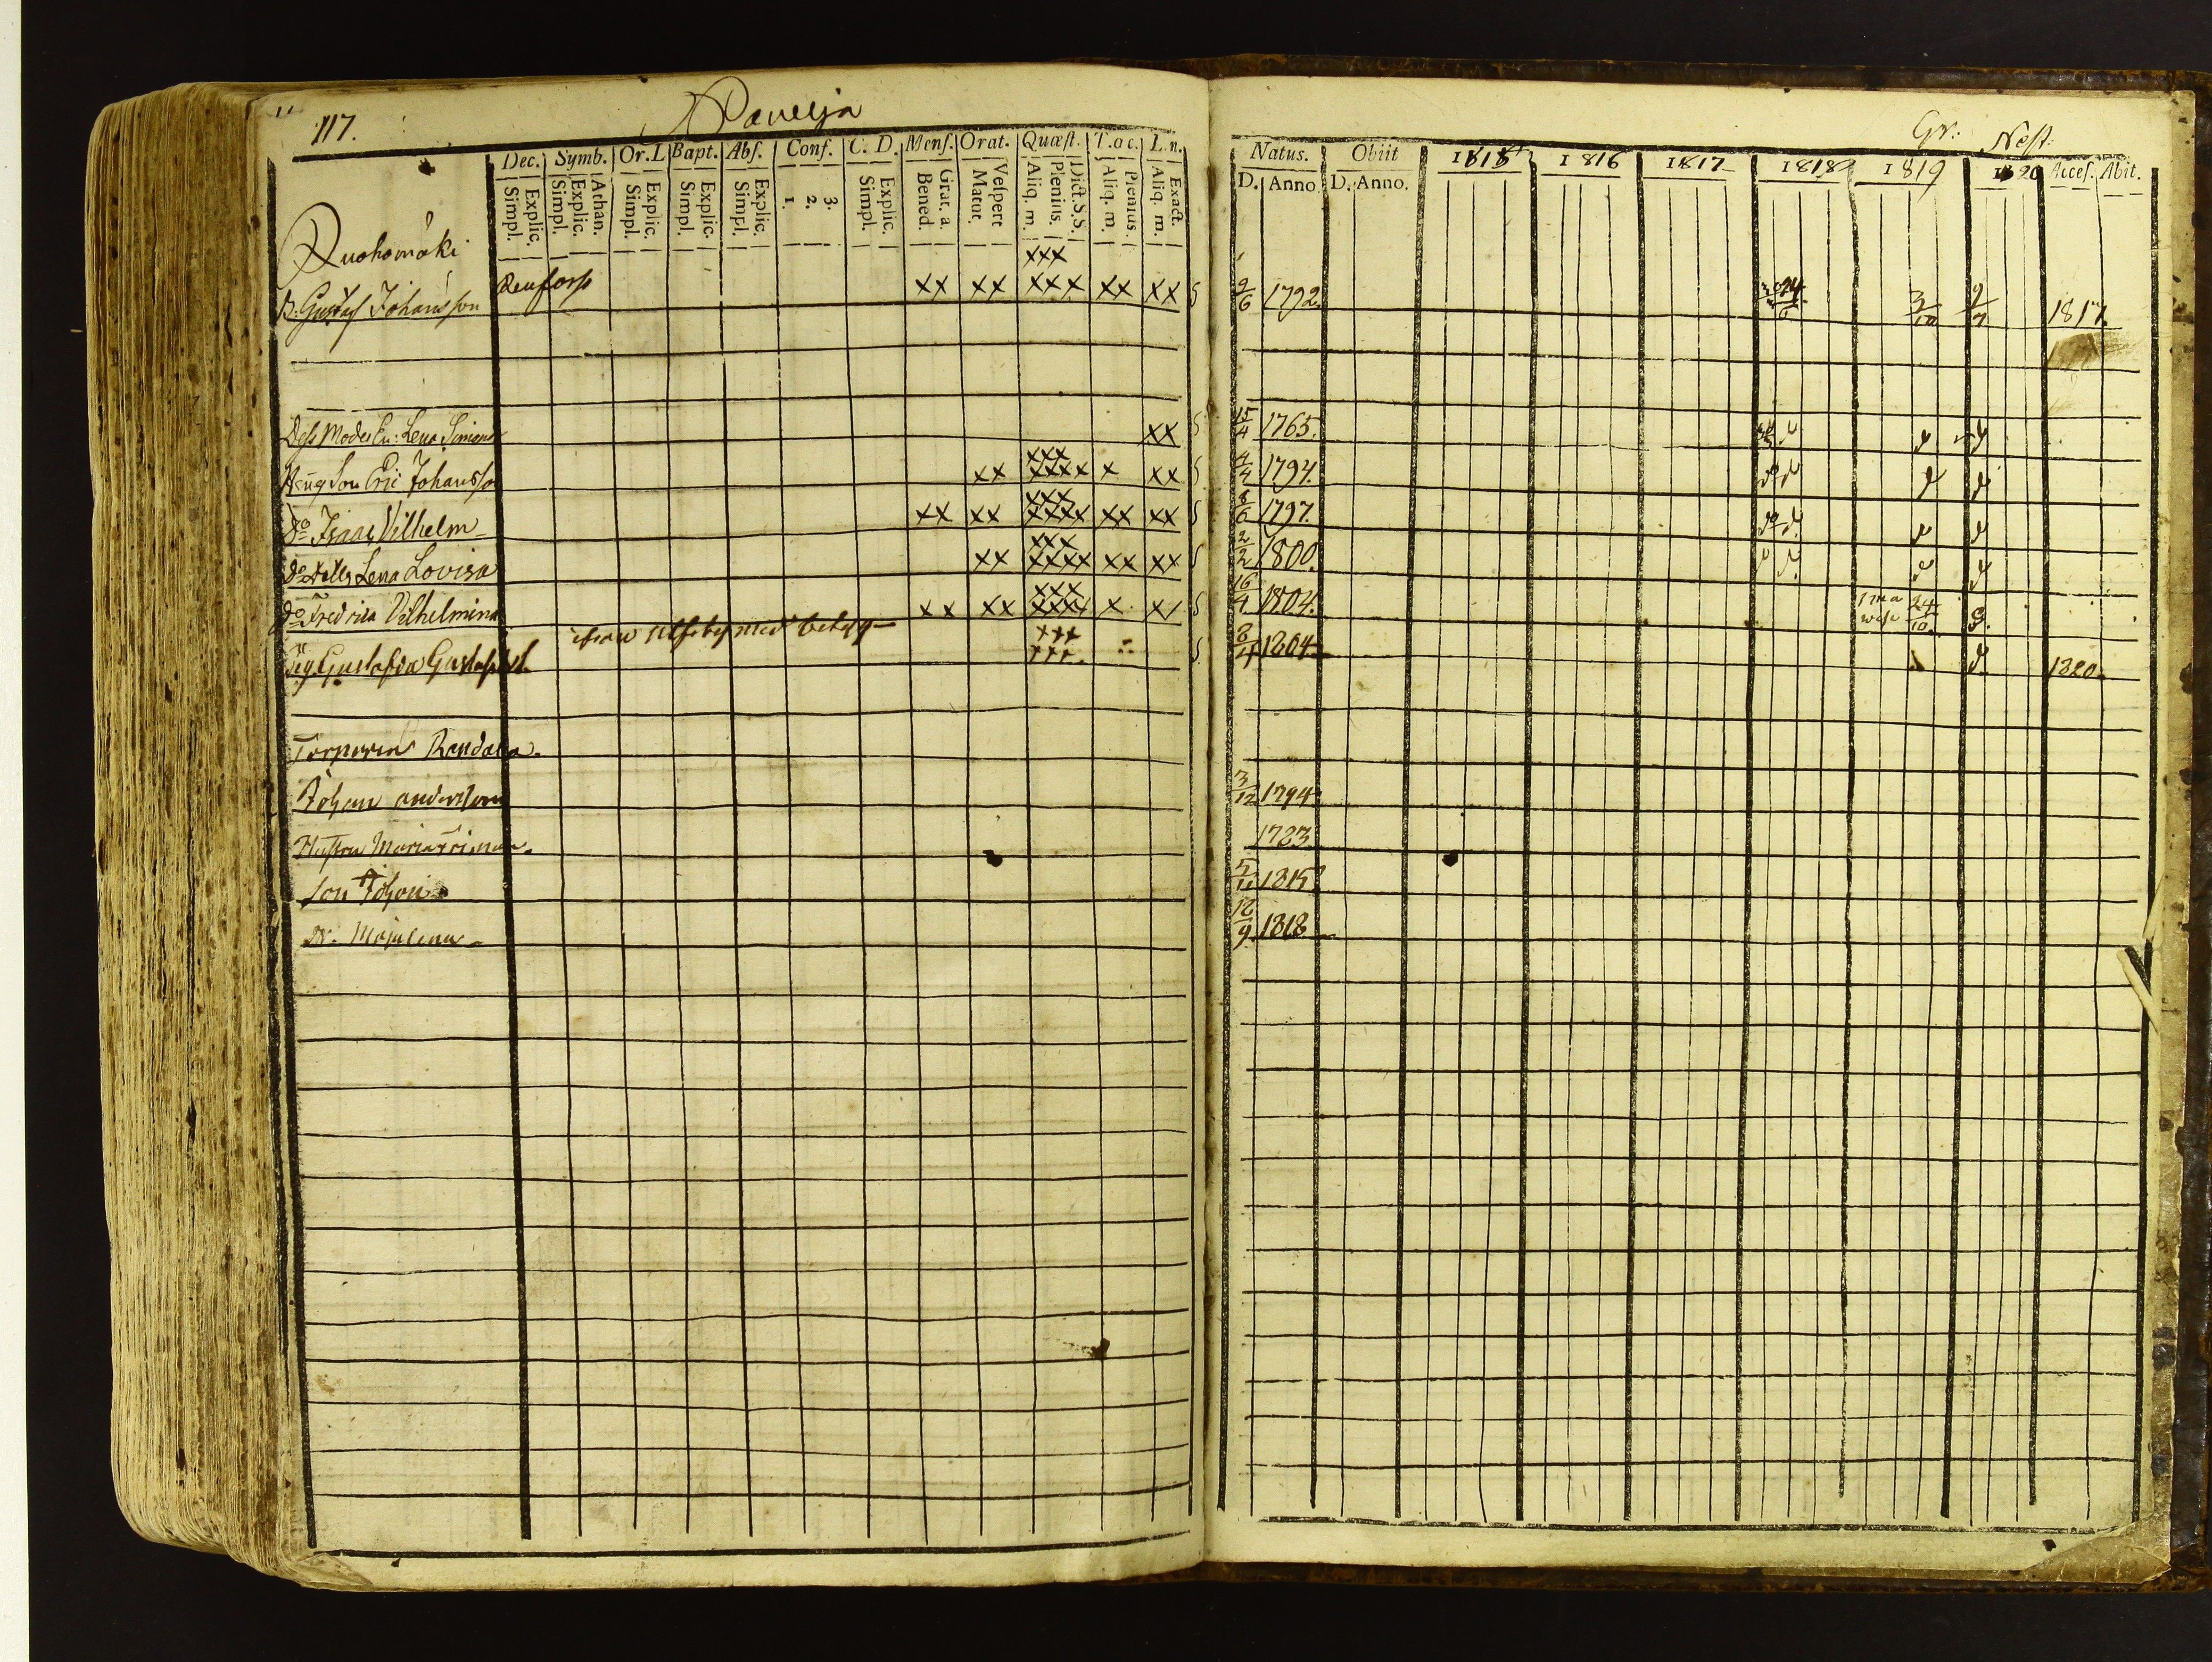 117.
Panelja
Dec. Symb. Or.L Bapt. Abs. Conf. C. D. Mens. Orat. Quæst. T.oc. L.n.
Simpl. Explic. Simpl. Explic. Athan. Simpl. Explic. Simpl. Explic. Simpl. Explic. 1. 2. 3. Simpl. Explic. Bened. Grat. a. Matut. Vespert Aliq. m. Plenius. Dict. S.S. Aliq. m. Plenius. Aliq. m. Exact.
Ruohomäki
xxx
B. Gustaf Johansson xx xx xxx xx xx
Dess Moder En: Lena Simons xx
xxx
Son Eric Johansson xx xxxx x xx
xxx
Do Isaac Vilhelm xx xx xxxx xx xx
xxx
Do Lena Lovisa xx xxxx xx xx
xxx
Do Fredrica Vilhelmina xx xx xxxx x xx
med betyg
xxx
Pig. Gustafva xxx
Johan andersson
Hustru Maria
Son Johan
Dr. Majalena
Gr: Nest:
Natus. Obiit 1815 1816 1817 1818 1819 1820 Acces. Abit.
D. Anno. D. Anno.
9/6 1792. 3/10 9/7 1817.
15/4 1765. d d
4/4 1794. d d
8/6 1797. d d
2/2 1800. d d
16/4 1804. 24/10. d.
8/4 1804 d. 1820.
3/12 1794
1723
5/11 1815
18/9 1818